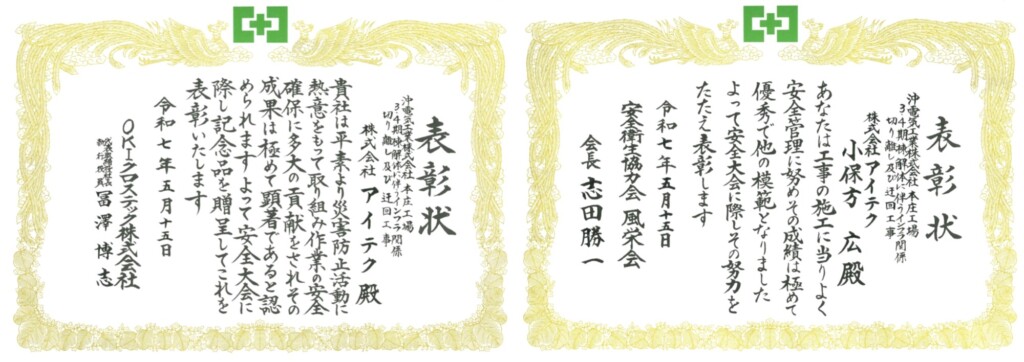 表彰状
沖電気工業株式会社 本庄工場
34期棟解体に伴うインフラ関係
切り離し及び 迂回工事
株式会社 アイテク 殿
貴社は平素より災害防止活動に
熱意をもって取り組み作業の安全
確保に多大の貢献をされその
成果は極めて顕著であると認
められますよって安全大会に
際し記念品を贈呈してこれを
表彰いたします
令和七年五月十五日
OKIクロステック株式会社
冨澤 博志
表彰状
沖電気工業株式会社 本庄工場
34期棟解体に伴うインフラ関係
切り離し及び 迂回工事
株式会社 アイテク
小保方 広 殿
あなたは工事の施工に当りよく
安全管理に努めその成績は極めて
優秀で他の模範となりました
よって安全大会に際しその努力を
たたえ表彰します
令和七年五月十五日
安全衛生協力会 風栄会
会長 志田勝一